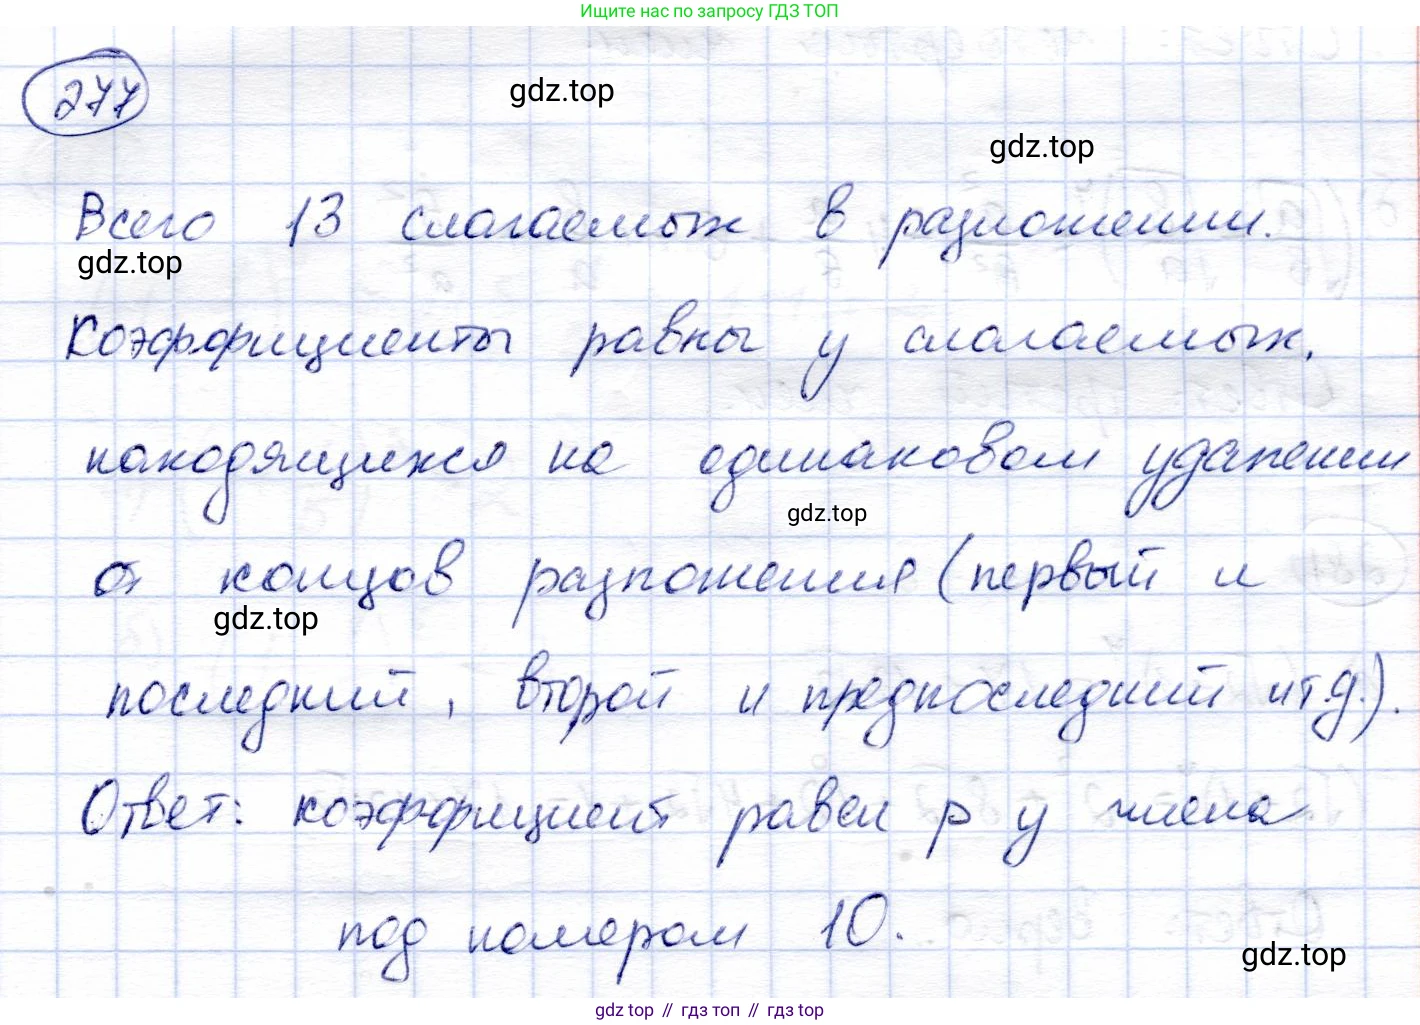 Ищите нас по запросу ГДЗ ТОП
277
gdz.top
gdz.top
Всего 13 слагаемых в разложении.
gdz.top
Коэффициенты равны у слагаемых,
находящихся на одинаковом удалении
gdz.top
от концов разложения (первый и
gdz.top
последний, второй и предпоследний и т.д.).
Ответ: коэффициент равен p у члена
под номером 10.
gdz.top
gdz top // гдз топ // гдз top